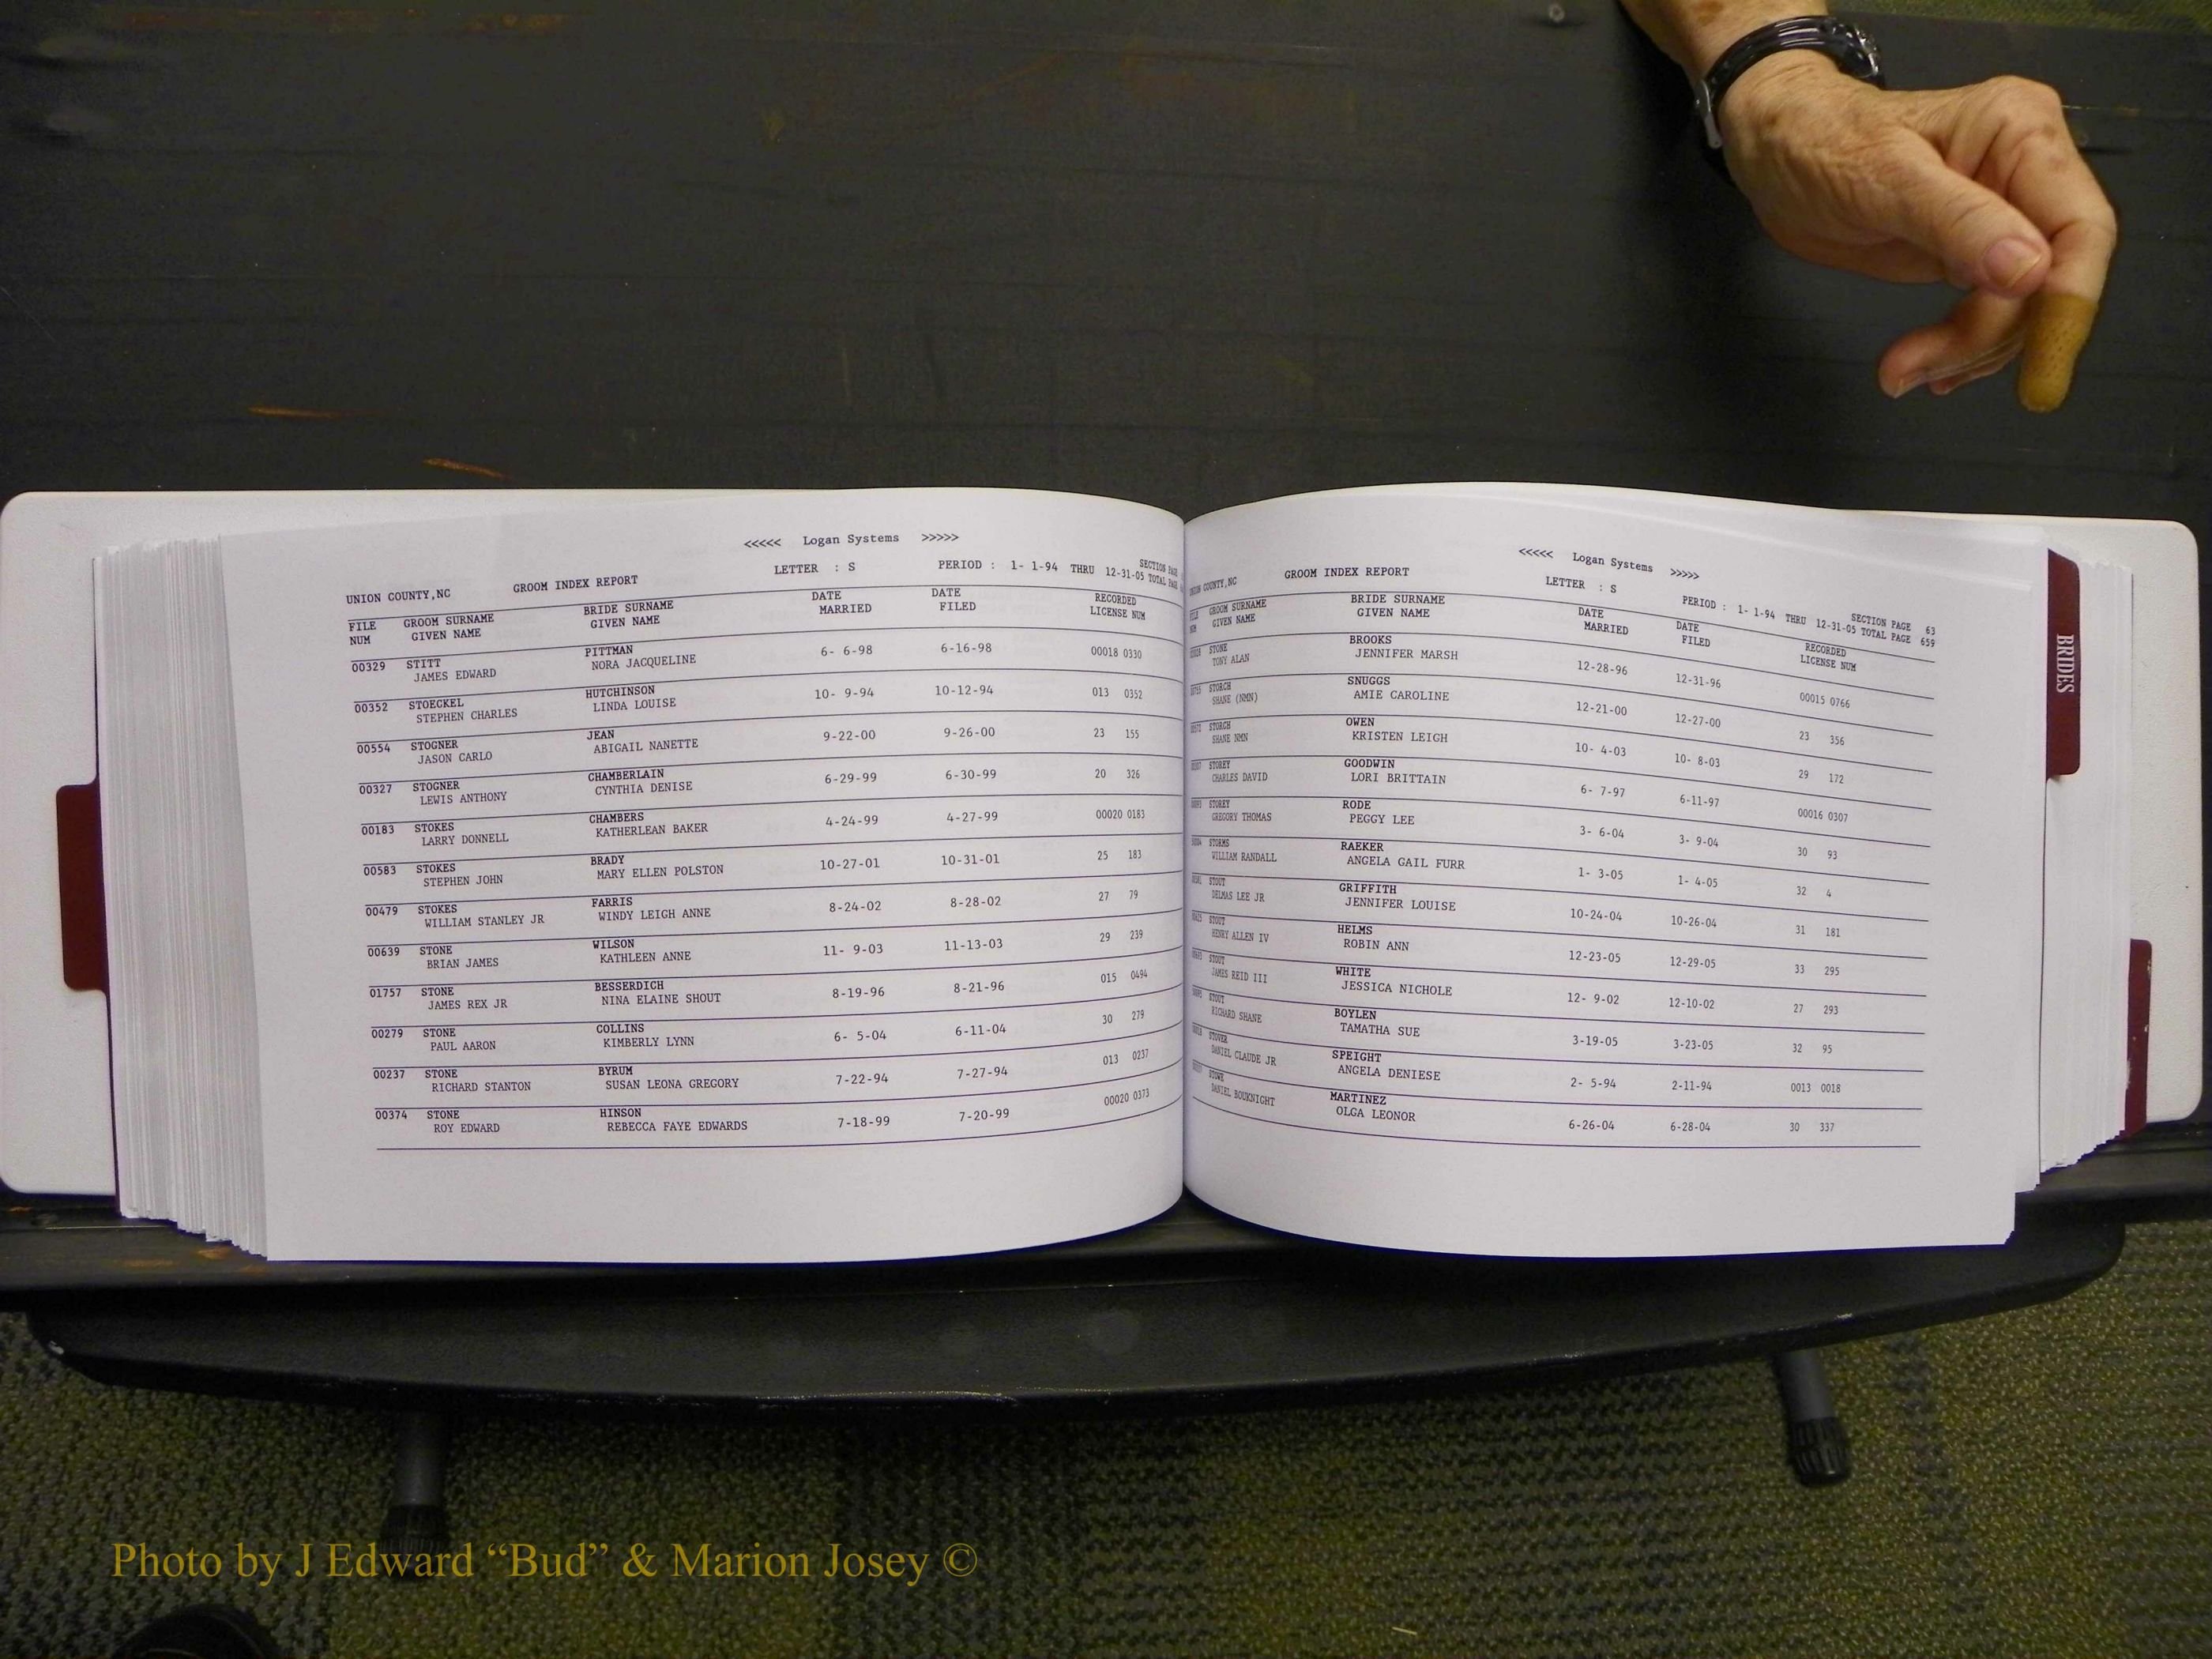 <<<<< Logan Systems >>>>>
UNION COUNTY,NC GROOM INDEX REPORT LETTER : S PERIOD : 1- 1-94 THRU 12-31-05 SECTION TOTAL
FILE NUM GROOM SURNAME GIVEN NAME BRIDE SURNAME GIVEN NAME DATE MARRIED DATE FILED RECORDED LICENSE NUM
00329 STITT PITTMAN 6- 6-98 6-16-98 00018 0330
JAMES EDWARD NORA JACQUELINE
00352 STOECKEL HUTCHINSON 10- 9-94 10-12-94 013 0352
STEPHEN CHARLES LINDA LOUISE
00554 STOGNER JEAN 9-22-00 9-26-00 23 155
JASON CARLO ABIGAIL NANETTE
00327 STOGNER CHAMBERLAIN 6-29-99 6-30-99 20 326
LEWIS ANTHONY CYNTHIA DENISE
00183 STOKES CHAMBERS 4-24-99 4-27-99 00020 0183
LARRY DONNELL KATHERLEAN BAKER
00583 STOKES BRADY 10-27-01 10-31-01 25 183
STEPHEN JOHN MARY ELLEN POLSTON
00479 STOKES FARRIS 8-24-02 8-28-02 27 79
WILLIAM STANLEY JR WINDY LEIGH ANNE
00639 STONE WILSON 11- 9-03 11-13-03 29 239
BRIAN JAMES KATHLEEN ANNE
01757 STONE BESSERDICH 8-19-96 8-21-96 015 0494
JAMES REX JR NINA ELAINE SHOUT
00279 STONE COLLINS 6- 5-04 6-11-04 30 279
PAUL AARON KIMBERLY LYNN
00237 STONE BYRUM 7-22-94 7-27-94 013 0237
RICHARD STANTON SUSAN LEONA GREGORY
00374 STONE HINSON 7-18-99 7-20-99 00020 0373
ROY EDWARD REBECCA FAYE EDWARDS
<<<<< Logan Systems >>>>>
UNION COUNTY,NC GROOM INDEX REPORT LETTER : S PERIOD : 1- 1-94 THRU 12-31-05 SECTION PAGE 63 TOTAL PAGE 659
GROOM SURNAME GIVEN NAME BRIDE SURNAME GIVEN NAME DATE MARRIED DATE FILED RECORDED LICENSE NUM
STONE BROOKS 12-28-96 12-31-96 00015 0766
TONY ALAN JENNIFER MARSH
STORCH SNUGGS 12-21-00 12-27-00 23 356
SHANE (NMN) AMIE CAROLINE
STORCH OWEN 10- 4-03 10- 8-03 29 172
SHANE NMN KRISTEN LEIGH
STOREY GOODWIN 6- 7-97 6-11-97 00016 0307
CHARLES DAVID LORI BRITTAIN
STOREY RODE 3- 6-04 3- 9-04 30 93
GREGORY THOMAS PEGGY LEE
STORMS RAEKER 1- 3-05 1- 4-05 32 4
WILLIAM RANDALL ANGELA GAIL FURR
STOUT GRIFFITH 10-24-04 10-26-04 31 181
DELMAS LEE JR JENNIFER LOUISE
STOUT HELMS 12-23-05 12-29-05 33 295
HENRY ALLEN IV ROBIN ANN
STOUT WHITE 12- 9-02 12-10-02 27 293
JAMES REID III JESSICA NICHOLE
STOUT BOYLEN 3-19-05 3-23-05 32 95
RICHARD SHANE TAMATHA SUE
STOVER SPEIGHT 2- 5-94 2-11-94 0013 0018
DANIEL CLAUDE JR ANGELA DENIESE
STOWE MARTINEZ 6-26-04 6-28-04 30 337
DANIEL BOUKNIGHT OLGA LEONOR
BRIDES
Photo by J Edward “Bud” & Marion Josey ©